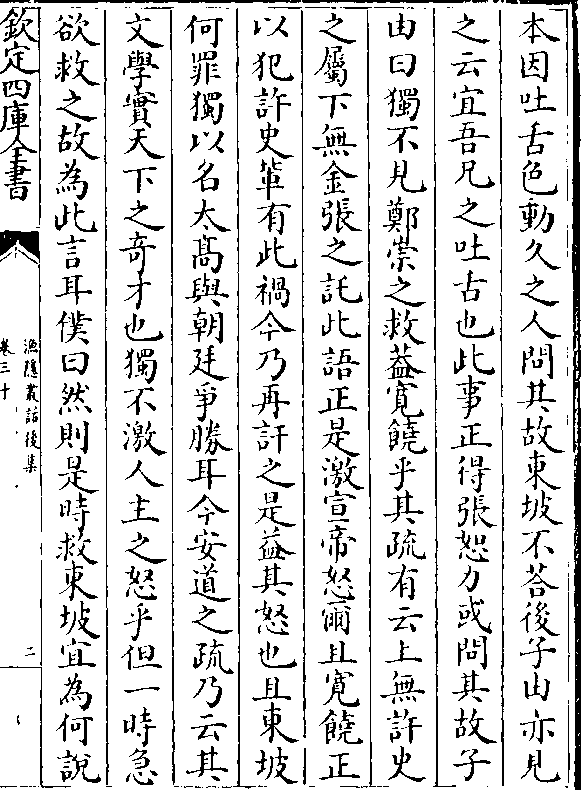 本因吐舌色動久之人問其故東坡不荅後子由亦見
之云宜吾兄之吐古也此事正得張恕力或問其故子
由曰獨不見鄭崇之救葢寛饒乎其疏有云上無許史
之屬下無金張之託此語正是激宣帝怒爾且寛饒正
以犯許史輩有此禍今乃再訐之是益其怒也且東坡
何罪獨以名太髙與朝廷爭勝耳今安道之疏乃云其
文學實天下之奇才也獨不激人主之怒乎但一時急
欲救之故為此言耳僕曰然則是時救東坡宜為何說
欽定四庫全書
漁隱叢話後集
卷三十
二